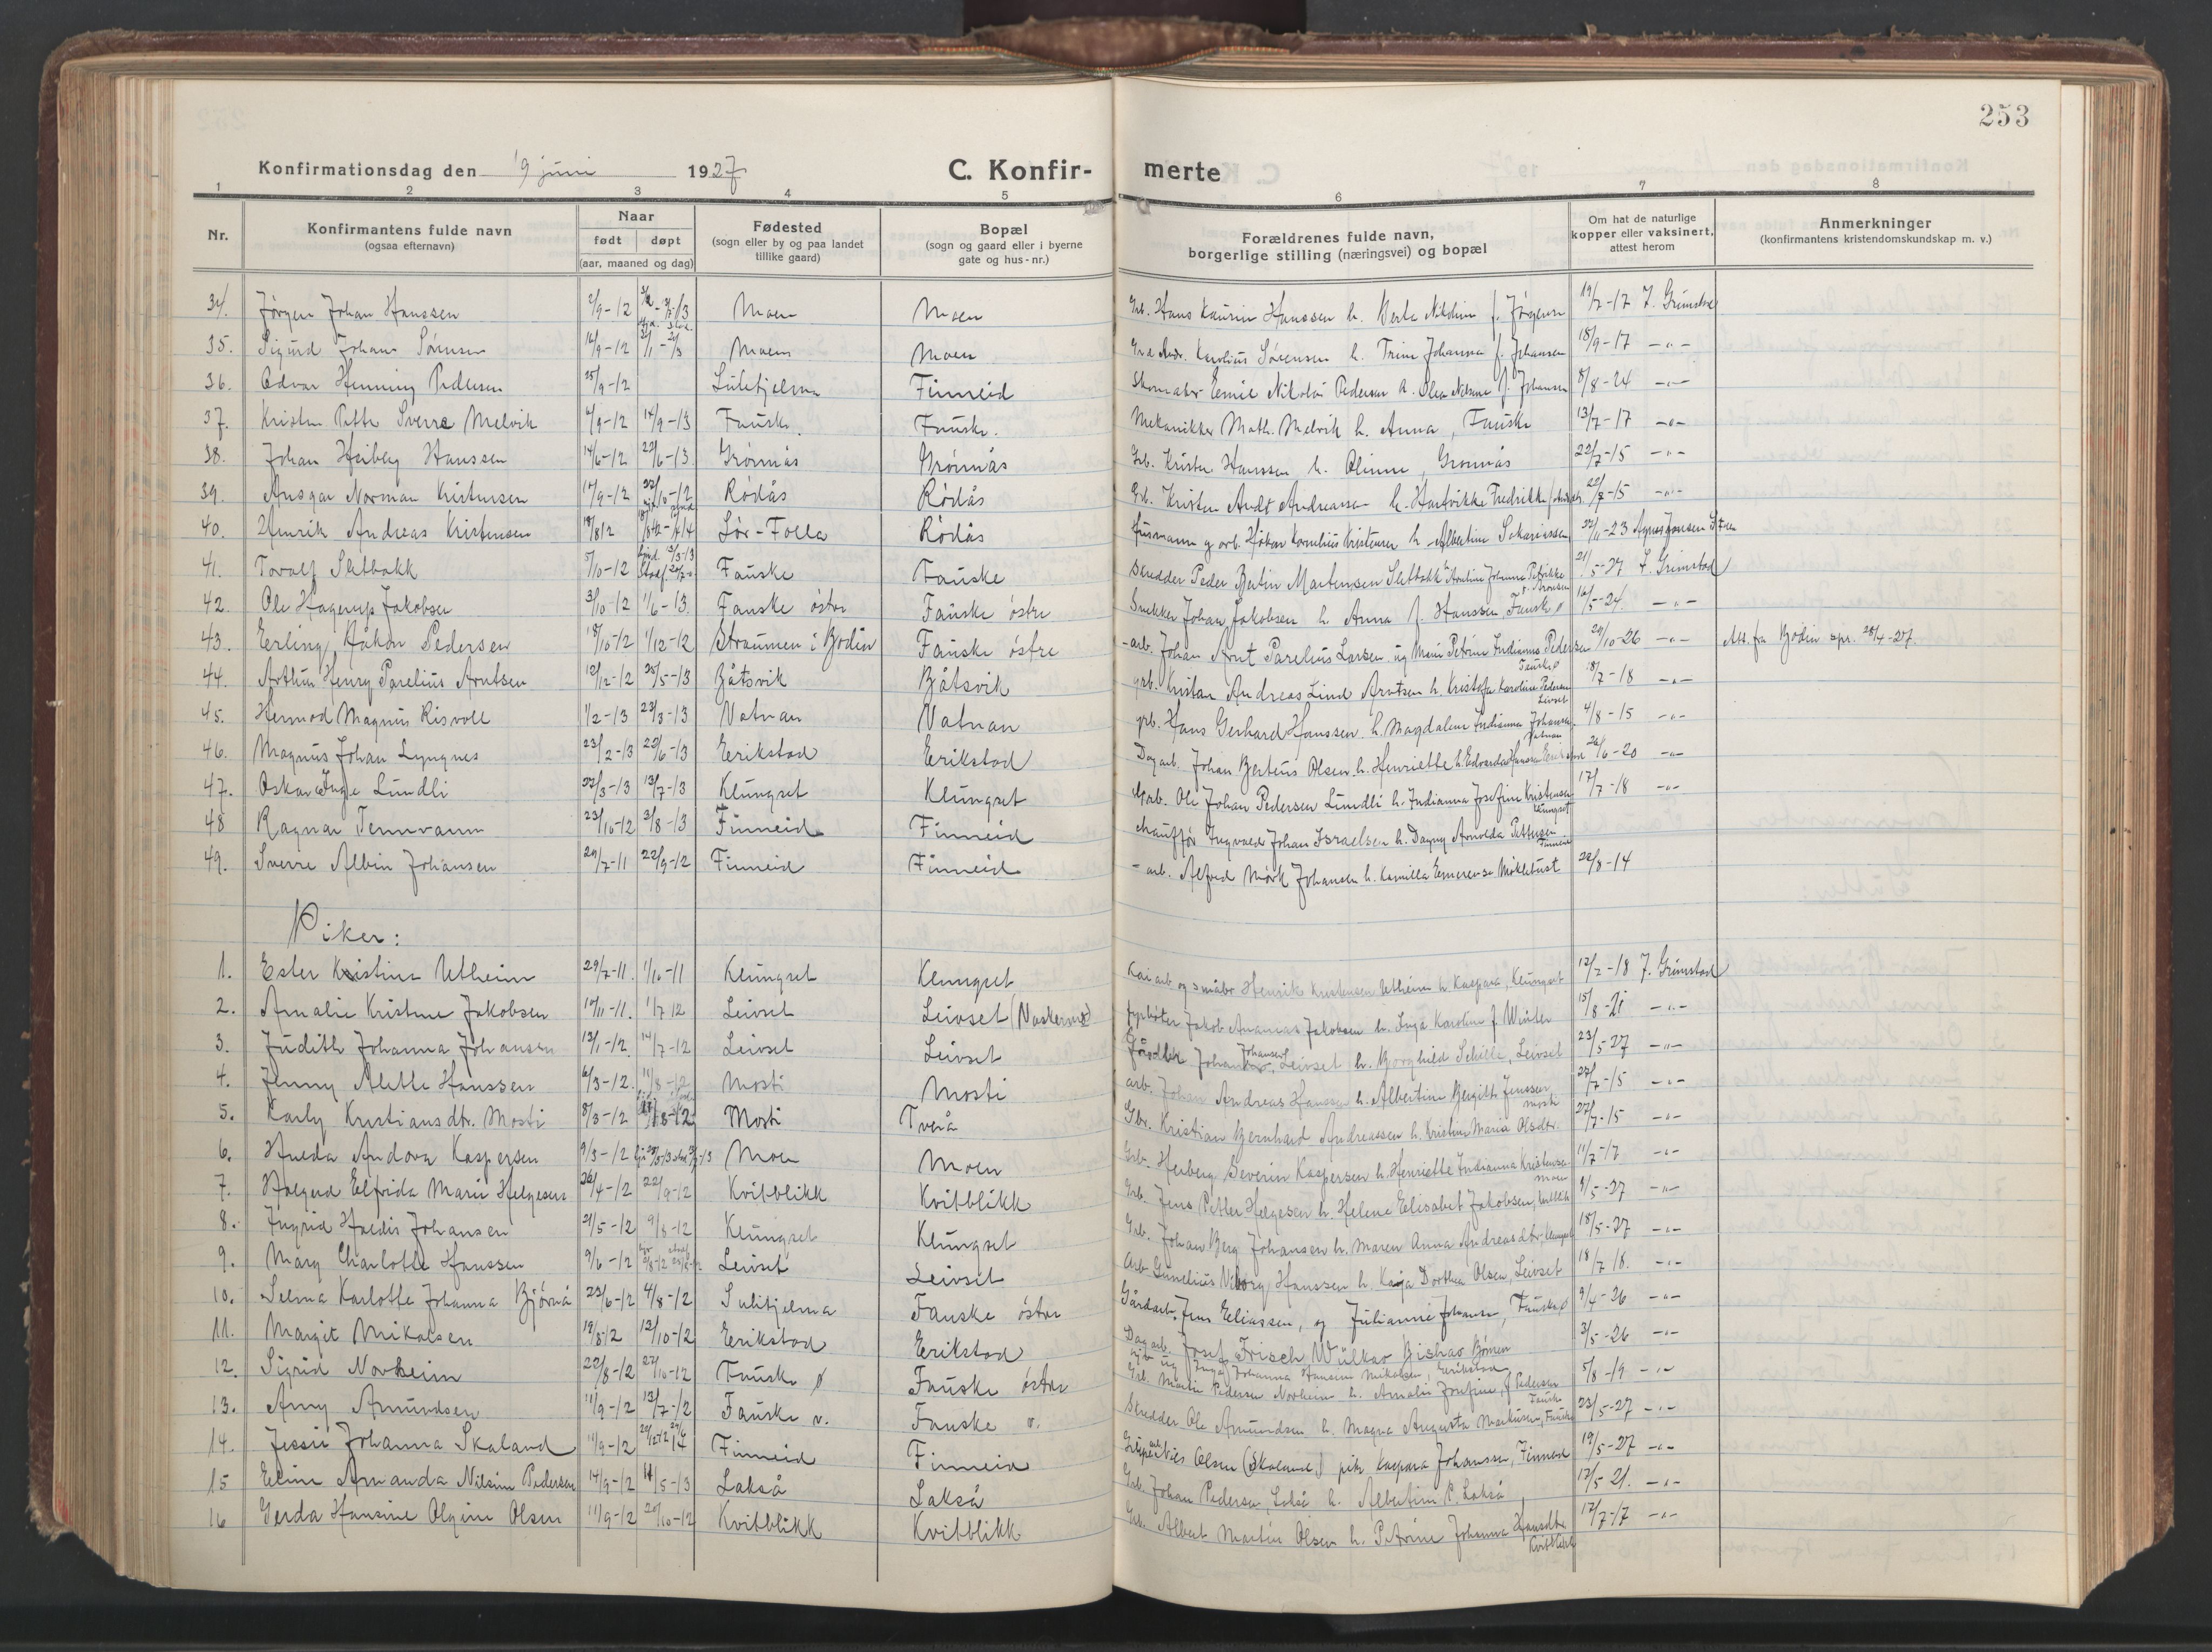 253
Konfirmationsdag den 19 juni 1927 C. Konfir- merte
1 2 3 4 5 6 7 8
Nr. Konfirmantens fulde navn (ogsaa efternavn) Naar født døpt (aar, maaned og dag) Fødested (sogn eller by og paa landet tillike gaard) Bopæl (sogn og gaard eller i byerne gate og hus-nr.) Forældrenes fulde navn, borgerlige stilling (næringsvei) og bopæl Om hat de naturlige kopper eller vaksinert, attest herom Anmerkninger (konfirmantens kristendomskundskap m. v.)
34. Jørgen Johan Hanssen 2/9-12 Moen Moen Grb. Hans Kaurin Hanssen h. Berta f. Jørgensen 19/7-17 J. Grimstad
35. Sigurd Johan Sørensen 16/9-12 Moen Moen Karolius Sørensen h. Trine Johanna f. Johansen 18/9-17 -"-
36. Edvar Henning Pedersen 25/9-12 Sulitjelma Finneid Skomaker Emil Nikolai Pedersen h. Olea f. Johansen 8/8-24 -"-
37. Kristen Petter Sverre Melvik 6/9-12 14/9-13 Fauske. Fauske. Mekanikker Math. Melvik h. Anna, Fauske 13/7-17 -"-
38. Johan Heiberg Hanssen 14/6-12 22/6-13 Grønnås Grønnås Grb. Krister Hanssen h. Oline, Grønnås 22/7-15 -"-
39. Ansgar Norman Kristensen 12/9-12 Rødås Rødås Grb. Kristen Andt Andreassen h. Hartvikke Fredrikke 22/7-15 -"-
40. Henrik Andreas Kristensen 18/812 Sør-Folla Rødås Husmann g arb. Håkon Kornelius Kristensen h. Albertine Sakariassen 22/11-23 Agnes Jensen
41. Toralf Sletbakk 5/10-12 Fauske Fauske Skredder Peder Bertin Martensen Sletbakk h. Arntine Johanna Petrikke 21/5-27 J. Grimstad
42. Ole Hagerup Jakobsen 3/10-12 1/6-13. Fauske østre Fauske østre Snekker Johan Jakobsen h Anna f. Hanssen, Fauske ø 16/5-24. -"-
43. Eerling Håkon Pedersen 18/10-12 1/12-12 Straumen i Bodin Fauske østre - arb. Johan Arnt Parelius Larsen og Marie Petrine Indianna Pedersen Fauske ø 29/10-26 -"- Att. fra Bodin spr. 28/4-27.
44. Arthur Henry Parelius Arntsen 12/12-12 25/5-13 Båtsvik Båtsvik grb. Kristan Andreas Lind Arntsen h. Kristofa Karoline Pedersen Leivset 18/7-18 -"-
45. Hermod Magnus Risvoll 1/2-13 23/3-13 Vatnan Vatnan grb. Hans Gerhard Hanssen h. Magdalene Indianna Johansen Vatnan 4/8-15 -"-
46. Magnus Johan Lyngnes 23/2-13 22/6-13 Erikstad Erikstad Dagarb. Johan Berteus Olsen h. Henriette Edvarda Hansen Erikstad 26/6-20 -"-
47. Oskar Inge Lundli 22/3-13 13/7-13 Klungset Klungset Grb. Ole Johan Pedersen Lundli h. Indianna Josefine Kristensen Klungset 17/7-18 -"-
48 Ragnar Tennvann 23/10-12 3/8-13 Finneid Finneid chauffør Ingvald Johan Israelsen h. Dagny Arnolda Pettersen Finneid
49. Sverre Albin Johansen 29/7-11 22/9-12 Finneid Finneid - arb. Alfred Mørk Johansen h. Kamilla Emerense Mikkelbust 22/8-14
Piker:
1. Ester Kristine Utheim 29/7-11. 1/10-11 Klungset Klungset Kaiarb og småbr Henrik Kristensen Utheim h. Kaspara, Klungset 12/2-18 J. Grimstad
2. Amalie Kristine Jakobsen 10/11-11. 1/7 12 Leivset Leivset (Naskervik) Fyrbøter Jakob Ananias Jakobsen h. Inga Karoline f. Winter 15/8-21 -"-
3. Judith Johanna Johansen 13/1-12. 14/7-12 Leivset Leivset Johan Johansen, Leivset h. Borghild Schille, Leivset 23/5-27 -"-
4. Jenny Alette Hanssen 6/3-12. 11/8-12 Mosti Mosti arb. Johan Andreas Hanssen h. Albertine Bergitte Jenssen Mosti 27/7-15 -"-
5. Karly Kristiansdtr. Mosti 8/3-12 Mosti Tverå Gbr. Kristian Bernhard Andreassen h. Kristine Maria Olsdtr. 27/7-15 -"-
6. Hulda Andora Kaspersen 9/3-12 Moen Moen Grb. Herberg Severin Kaspersen h. Henriette Indianna Kristensen Moen 11/7-17 -"-
7. Holgerd Elfrida Marie Helgesen 26/4-12 22/9-12 Kvitblikk Kvitblikk Grb. Jens Petter Helgesen h. Helene Elisabet Jakobsen, Kvitblikk 9/5-27 -"-
8. Ingrid Hordis Johansen 21/5-12 9/8-12 Klungset Klungset Grb. Johan Berg Johansen h. Maren Anna Andreasdtr. Klungset 18/5-27 -"-
9. Mary Charlotte Hanssen 9/6-12 Leivset Leivset Arb. Gunelius Hanssen h. Kaja Dorthea Olsen, Leivset 18/7 18. -"-
10. Selma Karlotte Johanna Bjørnå 23/6-12 4/8-12 Sulitjelma Fauske østre Gårdarb. Jens Eliassen, og Julianne Johansen, Fauske ø 9/4-26 -"-
11. Margit Mikalsen 19/8-12 12/10-12 Erikstad Erikstad Dagarb. Josef Frisch Wülkar Inga Johanna Hansine Mikalsen, Erikstad 3/5-26 -"-
12. Sigrid Norheim 22/8-12 27/10-12 Fauske ø Fauske østre Grb. Martin Pedersen Norheim h. Amalie Josefine, f Pedersen Fauske 5/8-19 -"-
13. Amy Amundsen 11/9-12 13/7-12 Fauske v. Fauske v. Skredder Ole Amundsen h. Magna Augusta Markussen, Fauske 23/5-27 -"-
14. Jessie Johanna Skaland 11/9-12 Finneid Finneid Nils Olsen (Skaland) pike Kaspara Johanssen, Finneid 19/5-27 -"-
15 Eline Amanda Nilsine Pedersen 14/9-12 11/5-13 Lakså Lakså Grb. Johan Pedersen, Lakså h. Albertine P. Lakså 12/5 21. -"-
16 Gerda Hansine Olgine Olsen 11/9-12 20/10-12 Kvitblikk Kvitblikk Grb. Albert Martin Olsen h. Petrine Johanna Hansdtr. Kvitblikk 12/7-17 -"-